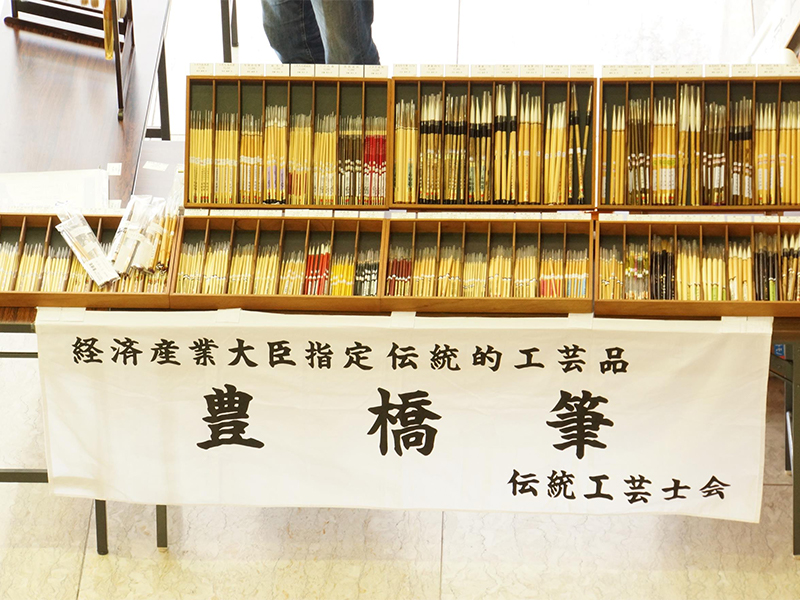 経済産業大臣指定伝統的工芸品
豊橋筆
伝統工芸士会